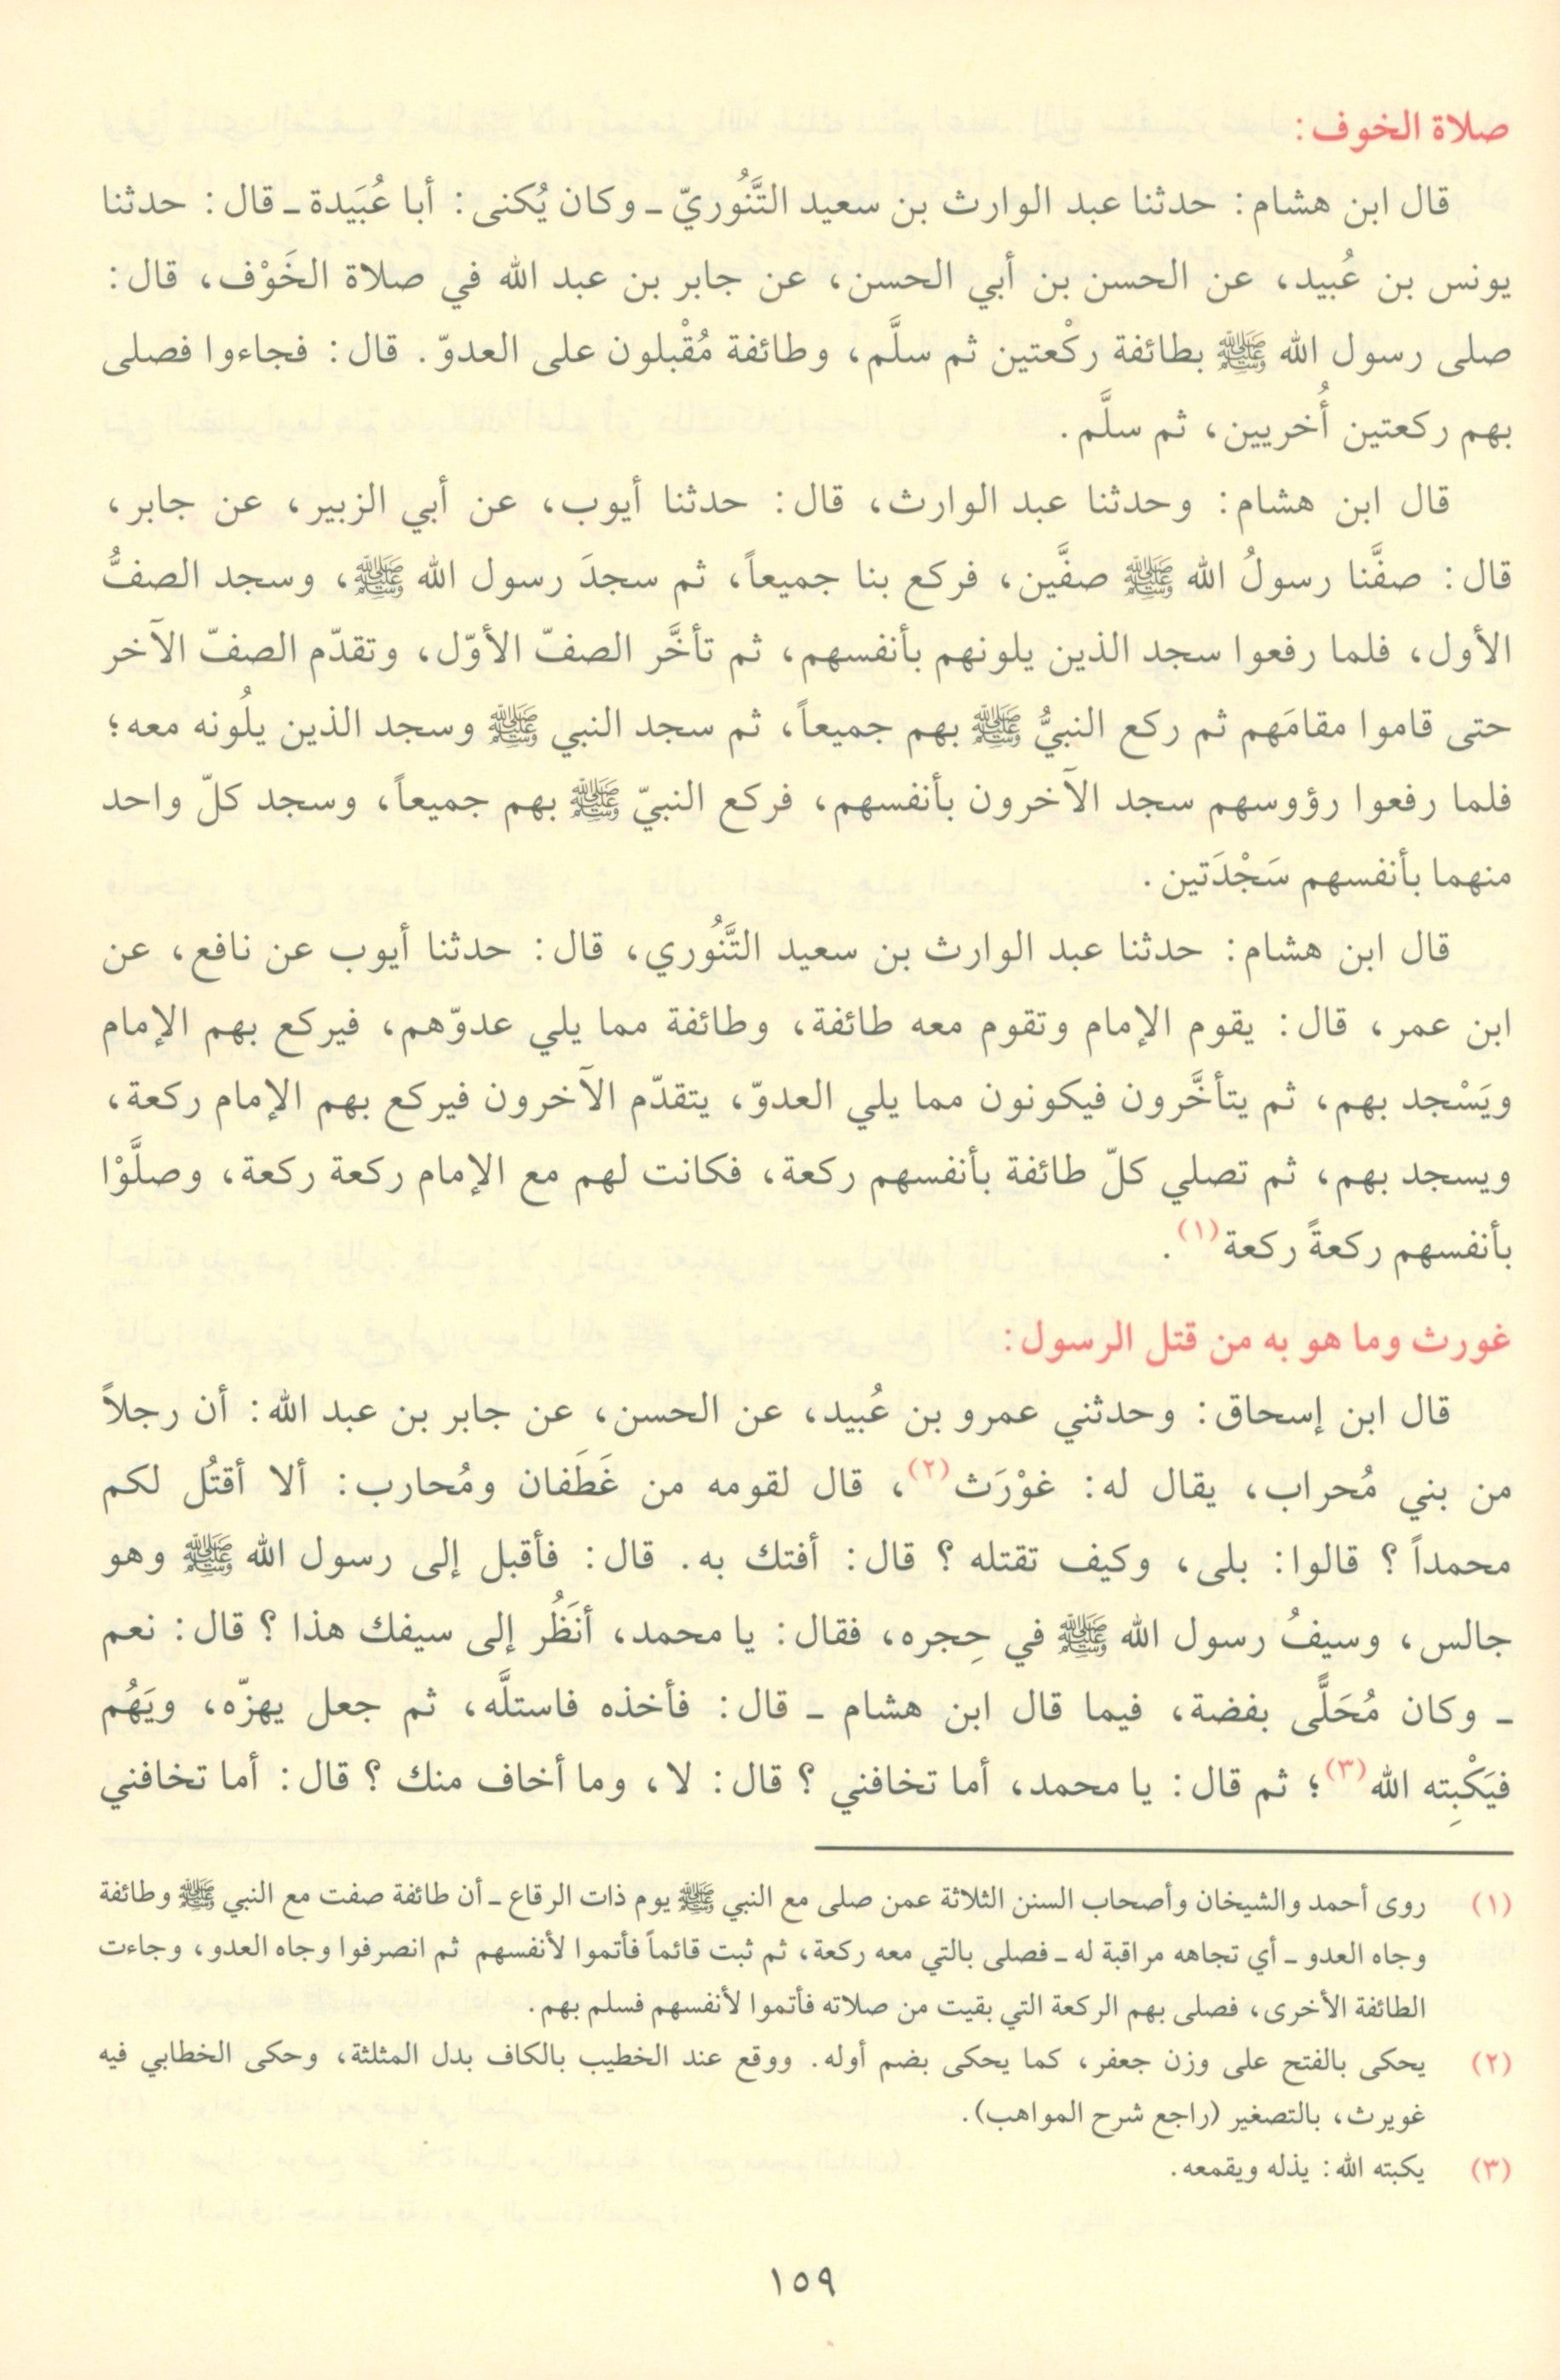 صلاة الخوف:
قال ابن هشام: حدثنا عبد الوارث بن سعيد التَّنُوريّ ـ وكان يُكنى: أبا عُبَيدة ـ قال: حدثنا
يونس بن عُبيد، عن الحسن بن أبي الحسن، عن جابر بن عبد الله في صلاة الخَوْف، قال:
صلى رسول الله ﷺ بطائفة ركْعتين ثم سلَّم، وطائفة مُقْبلون على العدوّ. قال: فجاءوا فصلى
بهم ركعتين أُخريين، ثم سلَّم.
قال ابن هشام: وحدثنا عبد الوارث، قال: حدثنا أيوب، عن أبي الزبير، عن جابر،
قال: صفَّنا رسولُ الله ﷺ صفَّين، فركع بنا جميعاً، ثم سجدَ رسول الله ﷺ، وسجد الصفُّ
الأول، فلما رفعوا سجد الذين يلونهم بأنفسهم، ثم تأخَّر الصفّ الأوّل، وتقدّم الصفّ الآخر
حتى قاموا مقامَهم ثم ركع النبيُّ ﷺ بهم جميعاً، ثم سجد النبي ﷺ وسجد الذين يلُونه معه؛
فلما رفعوا رؤوسهم سجد الآخرون بأنفسهم، فركع النبيّ ﷺ بهم جميعاً، وسجد كلّ واحد
منهما بأنفسهم سَجْدَتين.
قال ابن هشام: حدثنا عبد الوارث بن سعيد التَّنُوري، قال: حدثنا أيوب عن نافع، عن
ابن عمر، قال: يقوم الإمام وتقوم معه طائفة، وطائفة مما يلي عدوّهم، فيركع بهم الإمام
ويَسْجد بهم، ثم يتأخَّرون فيكونون مما يلي العدوّ، يتقدّم الآخرون فيركع بهم الإمام ركعة،
ويسجد بهم، ثم تصلي كلّ طائفة بأنفسهم ركعة، فكانت لهم مع الإمام ركعة ركعة، وصلَّوْا
بأنفسهم ركعةً ركعة(١).
غورث وما هو به من قتل الرسول:
قال ابن إسحاق: وحدثني عمرو بن عُبيد، عن الحسن، عن جابر بن عبد الله: أن رجلاً
من بني مُحراب، يقال له: غوْرَث(٢)، قال لقومه من غَطَفان ومُحارب: ألا أقتُل لكم
محمداً؟ قالوا: بلى، وكيف تقتله؟ قال: أفتك به. قال: فأقبل إلى رسول الله ﷺ وهو
جالس، وسيفُ رسول الله ﷺ في حِجره، فقال: يا محمد، أنَظُر إلى سيفك هذا؟ قال: نعم
ـ وكان مُحَلًّى بفضة، فيما قال ابن هشام ـ قال: فأخذه فاستلَّه، ثم جعل يهزّه، ويَهُم
فيَكْبِته الله(٣)؛ ثم قال: يا محمد، أما تخافني؟ قال: لا، وما أخاف منك؟ قال: أما تخافني
(١) روى أحمد والشيخان وأصحاب السنن الثلاثة عمن صلى مع النبي ﷺ يوم ذات الرقاع ـ أن طائفة صفت مع النبي ﷺ وطائفة
وجاه العدو ـ أي تجاهه مراقبة له ـ فصلى بالتي معه ركعة، ثم ثبت قائماً فأتموا لأنفسهم ثم انصرفوا وجاه العدو، وجاءت
الطائفة الأخرى، فصلى بهم الركعة التي بقيت من صلاته فأتموا لأنفسهم فسلم بهم.
(٢) يحكى بالفتح على وزن جعفر، كما يحكى بضم أوله. ووقع عند الخطيب بالكاف بدل المثلثة، وحكى الخطابي فيه
غويرث، بالتصغير (راجع شرح المواهب).
(٣) يكبته الله: يذله ويقمعه.
١٥٩